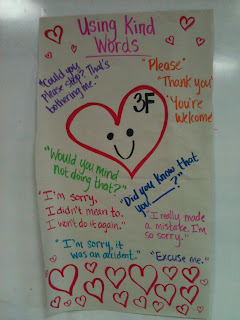 Using Kind
Words
"Could you
please stop? That's
bothering me."
"Please"
"Thank you"
"You're
Welcome"
3F
"Would you mind
not doing that?"
"Did you know that
you ____?"
"I'm sorry,
I didn't mean to.
I won't do it again."
"I really made
a mistake. I'm
so sorry."
"I'm sorry, it
was an accident."
"Excuse me."